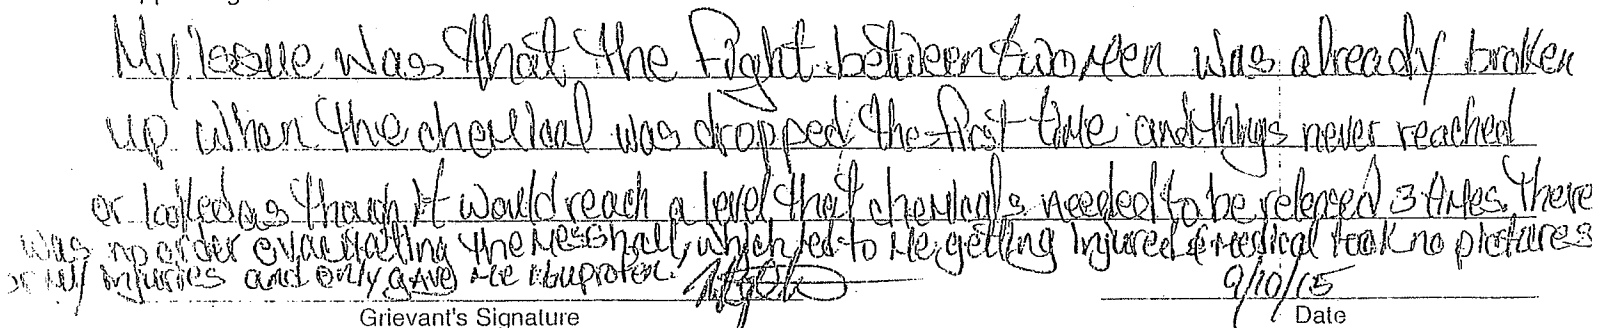 My issue was that the fight between two men was already broken
up when the chemical was dropped the first time and things never reached
or looked as though it would reach a level that chemicals needed to be released 3 times. There
was no order evacuating the messhall, which led to me getting injured & medical took no pictures
or my injuries and only gave me ibuprofen.
9/10/15
Grievant's Signature
Date